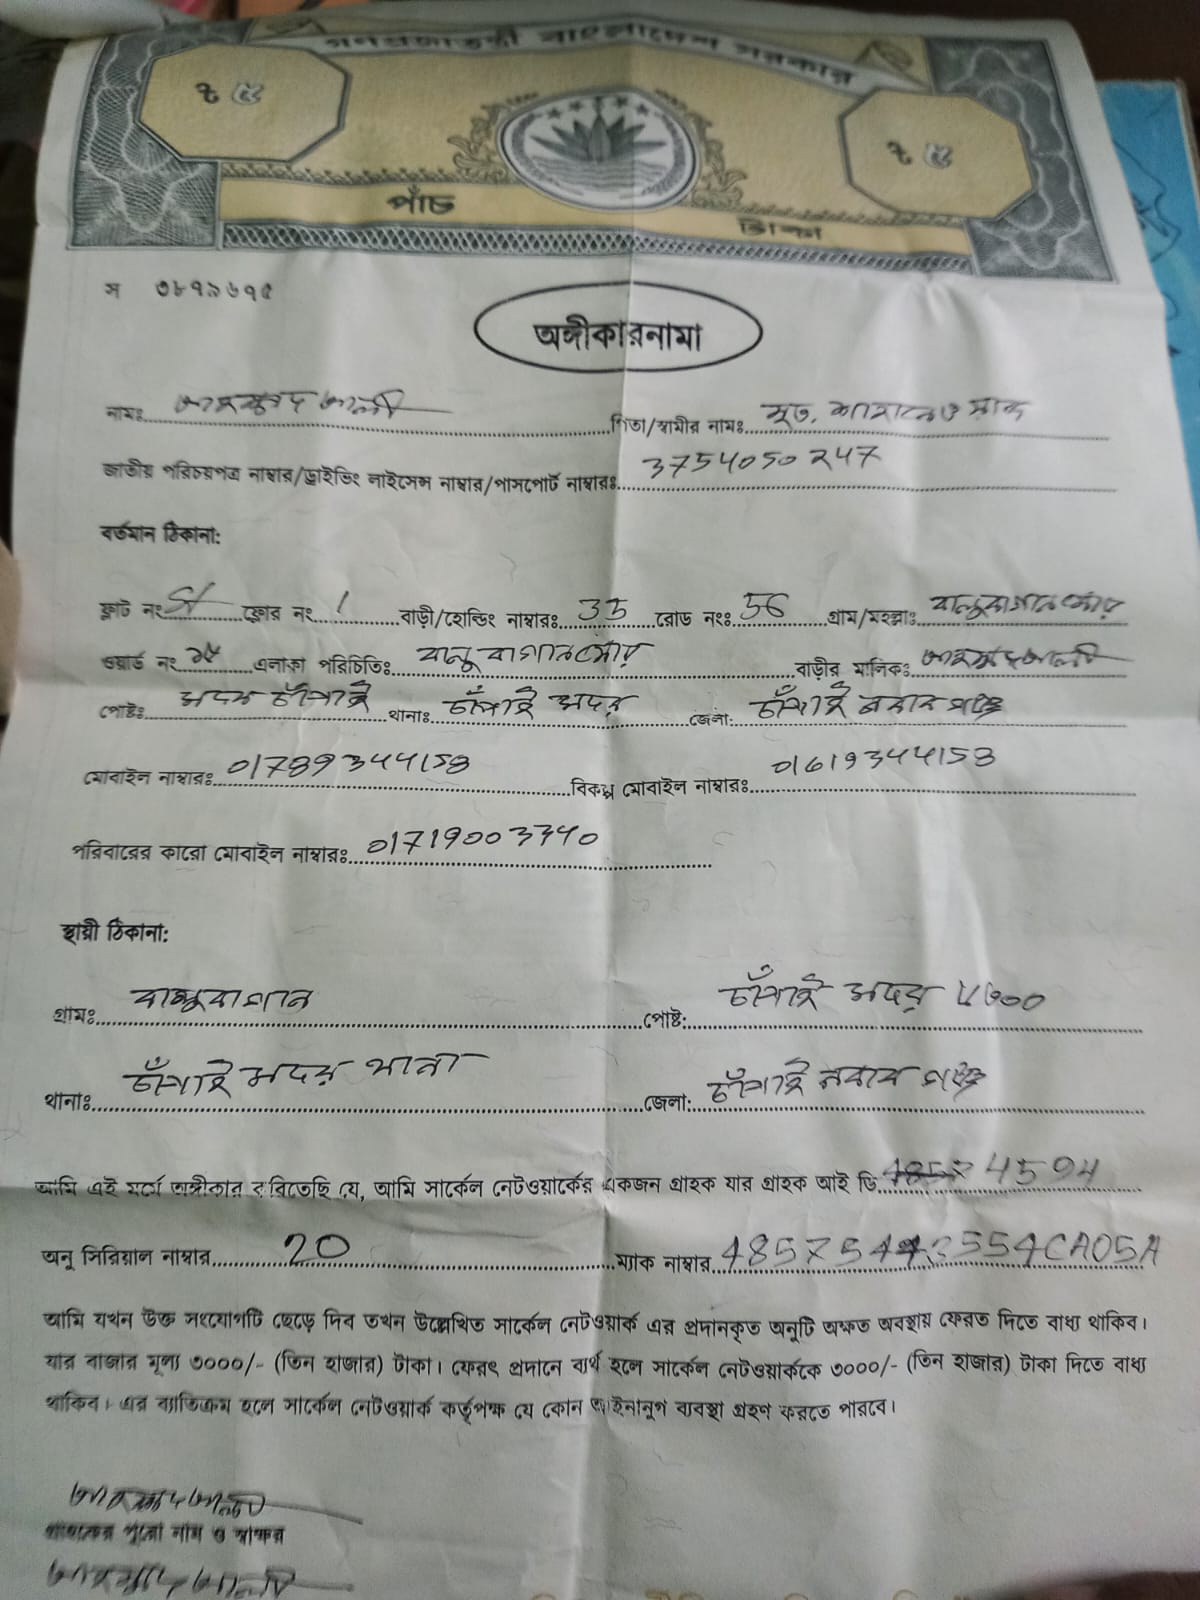 গণপ্রজাতন্ত্রী বাংলাদেশ সরকার
৳ ৫ ৳ ৫
পাঁচ টাকা
স ৩৮৭৯৬৭৫
অঙ্গীকারনামা
নামঃ পিতা/স্বামীর নামঃ মৃত.
জাতীয় পরিচয়পত্র নাম্বার/ড্রাইভিং লাইসেন্স নাম্বার/পাসপোর্ট নাম্বারঃ 3754050247
বর্তমান ঠিকানা:
ফ্লাট নং ফ্লোর নং 1 বাড়ী/হোল্ডিং নাম্বারঃ 33 রোড নংঃ 56 গ্রাম/মহল্লাঃ বালুবাগান মোড়
ওয়ার্ড নং ১৫ এলাকা পরিচিতিঃ বালুবাগান মোড় বাড়ীর মালিকঃ
পোষ্টঃ সদর চাঁপাই থানাঃ চাঁপাই সদর জেলা: চাঁপাই নবাবগঞ্জ
মোবাইল নাম্বারঃ 01789344158 বিকল্প মোবাইল নাম্বারঃ 01619344158
পরিবারের কারো মোবাইল নাম্বারঃ 01719003340
স্থায়ী ঠিকানা:
গ্রামঃ বালুবাগান পোষ্ট: চাঁপাই সদর ৬৩০০
থানাঃ চাঁপাই সদর থানা জেলা: চাঁপাই নবাবগঞ্জ
আমি এই মর্মে অঙ্গীকার করিতেছি যে, আমি সার্কেল নেটওয়ার্কের একজন গ্রাহক যার গ্রাহক আই ডি 4594
অনু সিরিয়াল নাম্বার 20 ম্যাক নাম্বার
আমি যখন উক্ত সংযোগটি ছেড়ে দিব তখন উল্লেখিত সার্কেল নেটওয়ার্ক এর প্রদানকৃত অনুটি অক্ষত অবস্থায় ফেরত দিতে বাধ্য থাকিব।
যার বাজার মূল্য ৩০০০/- (তিন হাজার) টাকা। ফেরৎ প্রদানে ব্যর্থ হলে সার্কেল নেটওয়ার্ককে ৩০০০/- (তিন হাজার) টাকা দিতে বাধ্য
থাকিব। এর ব্যতিক্রম হলে সার্কেল নেটওয়ার্ক কর্তৃপক্ষ যে কোন আইনানুগ ব্যবস্থা গ্রহণ করতে পারবে।
গ্রাহকের পুরো নাম ও স্বাক্ষর